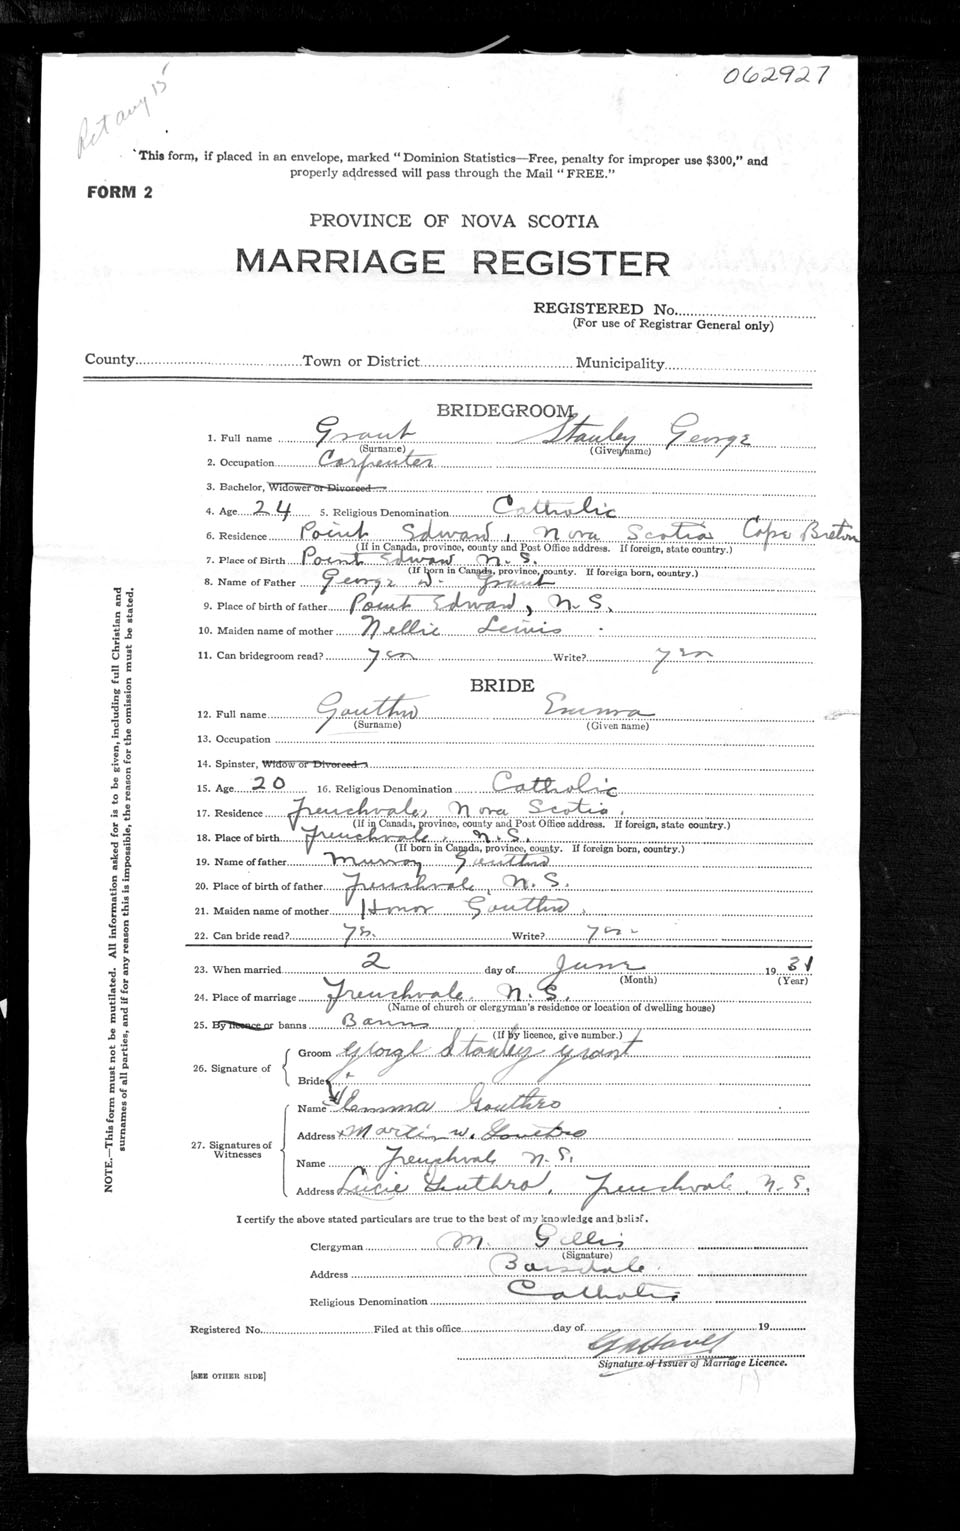 062927
Ret aug 15
"This form, if placed in an envelope, marked "Dominion Statistics—Free, penalty for improper use $300," and
properly addressed will pass through the Mail "FREE."
FORM 2
PROVINCE OF NOVA SCOTIA
MARRIAGE REGISTER
REGISTERED No.
(For use of Registrar General only)
County Town or District Municipality
BRIDEGROOM
1. Full name Grant Stanley George
(Surname) (Given name)
2. Occupation Carpenter
3. Bachelor, Widower or Divorced
4. Age 24 5. Religious Denomination Catholic
6. Residence Point Edward, Nova Scotia Cape Breton
(If in Canada, province, county and Post Office address. If foreign, state country.)
7. Place of Birth Point Edward N.S.
(If born in Canada, province, county. If foreign born, country.)
8. Name of Father George W. Grant
9. Place of birth of father Point Edward, N.S.
10. Maiden name of mother Nellie Lewis
11. Can bridegroom read? yes Write? yes
BRIDE
12. Full name Gouthro Emma
(Surname) (Given name)
13. Occupation
14. Spinster, Widow or Divorced
15. Age 20 16. Religious Denomination Catholic
17. Residence Frenchvale, Nova Scotia.
(If in Canada, province, county and Post Office address. If foreign, state country.)
18. Place of birth Frenchvale, N.S.
(If born in Canada, province, county. If foreign born, country.)
19. Name of father Murray Gouthro
20. Place of birth of father Frenchvale, N.S.
21. Maiden name of mother Honor Gouthro
22. Can bride read? yes. Write? yes
23. When married 2 day of June 1931
(Month) (Year)
24. Place of marriage Frenchvale, N.S.
(Name of church or clergyman's residence or location of dwelling house)
25. By licence or banns Banns
(If by licence, give number.)
26. Signature of
Groom George Stanley Grant
Bride
27. Signatures of Witnesses
Name Emma Gouthro
Address x Martin W. Gouthro
Name Frenchvale N.S.
Address Lucie Gouthro, Frenchvale, N.S.
I certify the above stated particulars are true to the best of my knowledge and belief.
Clergyman M. Gillis
(Signature)
Address Boisdale
Religious Denomination Catholic
Registered No. Filed at this office day of 19
Signature of Issuer of Marriage Licence.
[SEE OTHER SIDE]
NOTE.—This form must not be mutilated. All information asked for is to be given, including full Christian and
surnames of all parties, and if for any reason this is impossible, the reason for the omission must be stated.